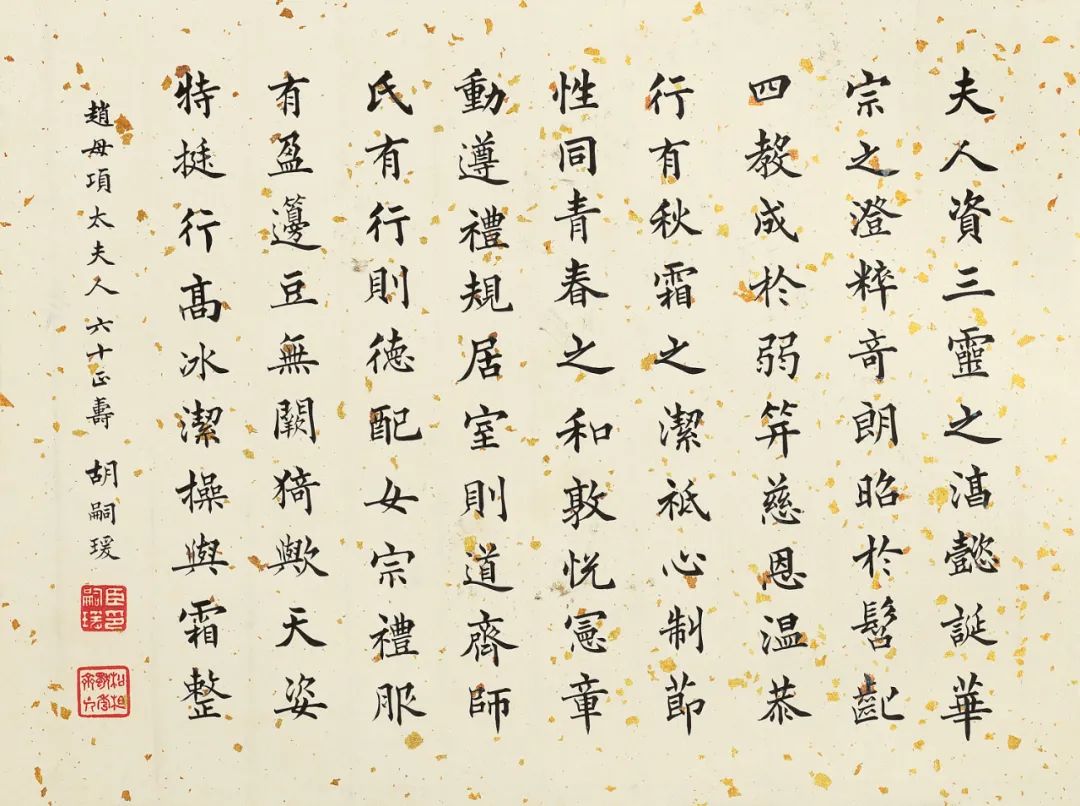 夫人資三靈之湻懿誕華
宗之澄粹竒朗昭於髫齔
四教成於弱笄慈恩温恭
行有秋霜之潔祗心制節
性同青春之和敦悅憲章
動遵禮規居室則道齊師
氏有行則德配女宗禮服
有盈籩豆無闕猗歟天姿
特挺行髙冰潔操與霜整
趙母項太夫人六十正壽 胡嗣瑗
臣印嗣瑗